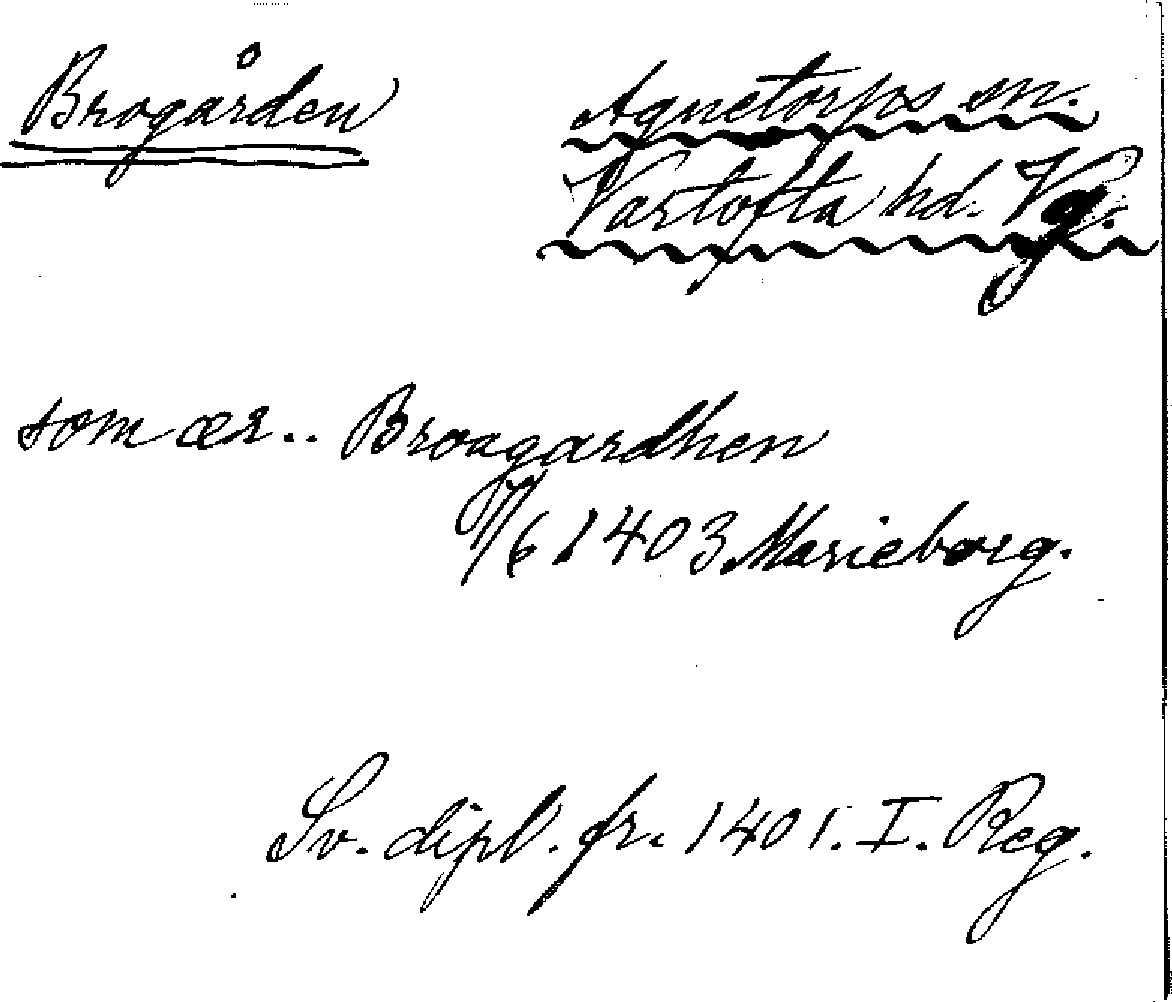 Brogården
Agnetorps sn.
Vartofta hd. Vg.
som ær.. Broagardhen
7/6 1403 Marieborg.
Sv. dipl. fr. 1401. I. Reg.